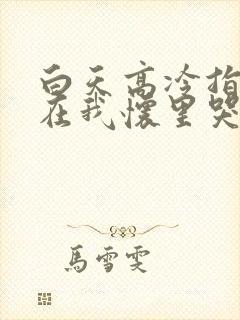 白天高冷指
在我怀里哭
馬雪雯